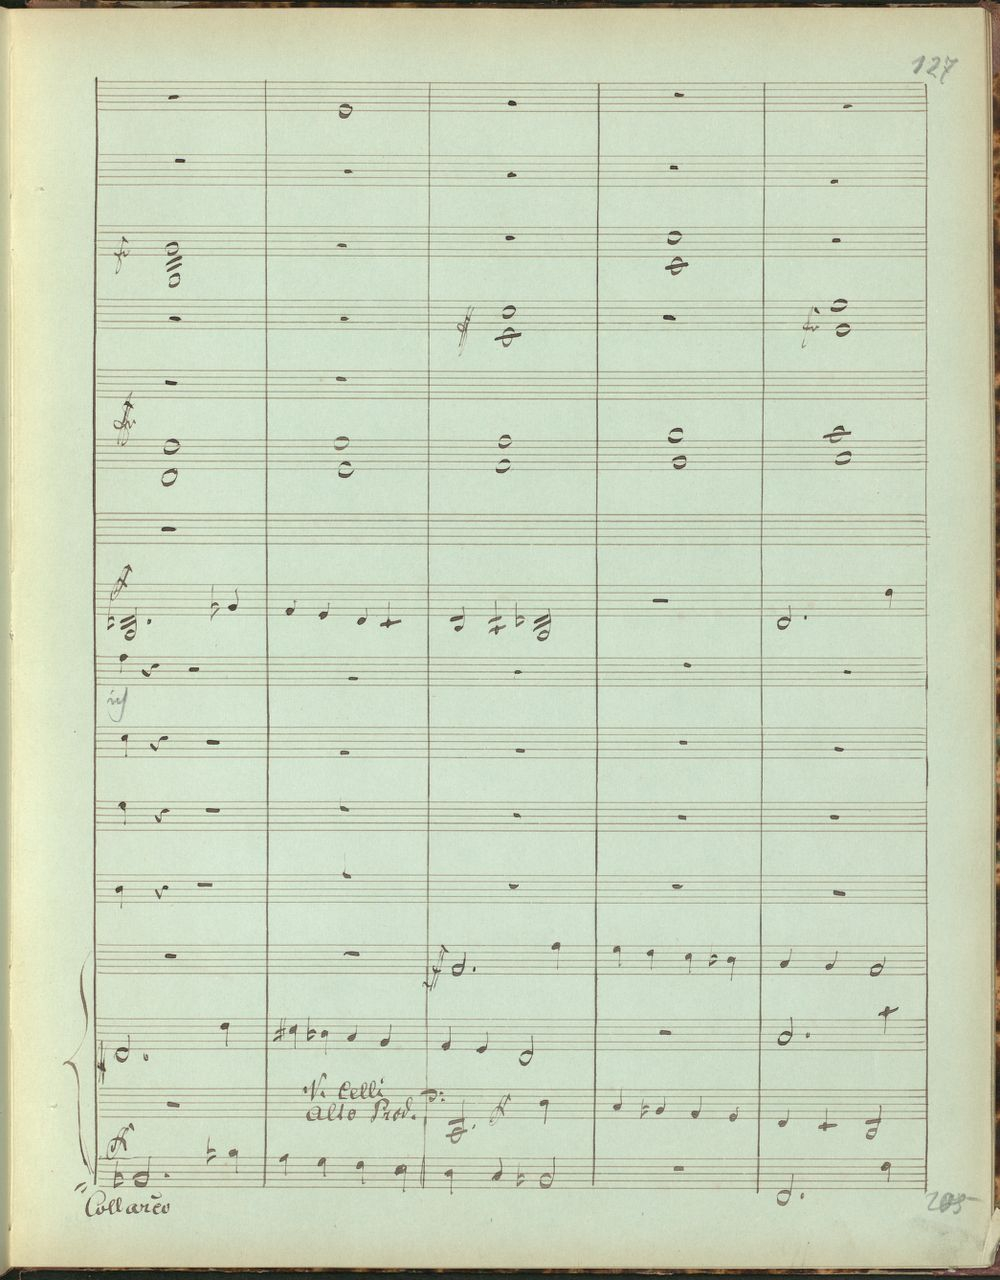 127
ff
ff
ff
ff
ff
ff
V. Celli
Alto Prod.
ff
ff
ff
Coll arco